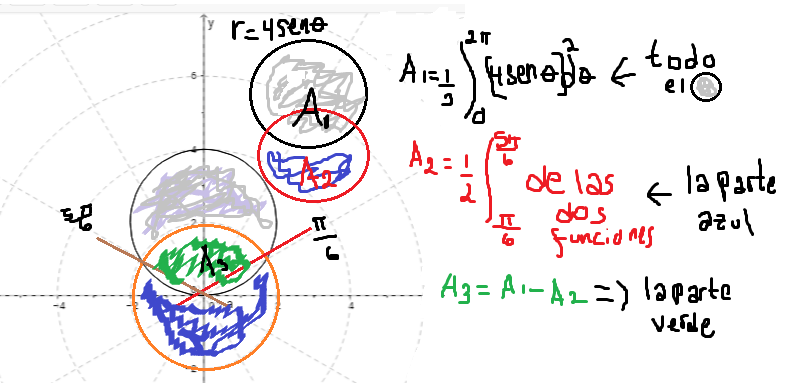 r=4senθ
y
6
4
2
-4
4
-2
A₁
A₂
A₃
5π/6
π/6
A₁=1/3 ∫₀^2π [4senθ]²dθ ← todo
el
A₂=1/2 ∫π/6^5π/6 de las
dos
funciones
← la parte
azul
A₃=A₁-A₂=> la parte
verde